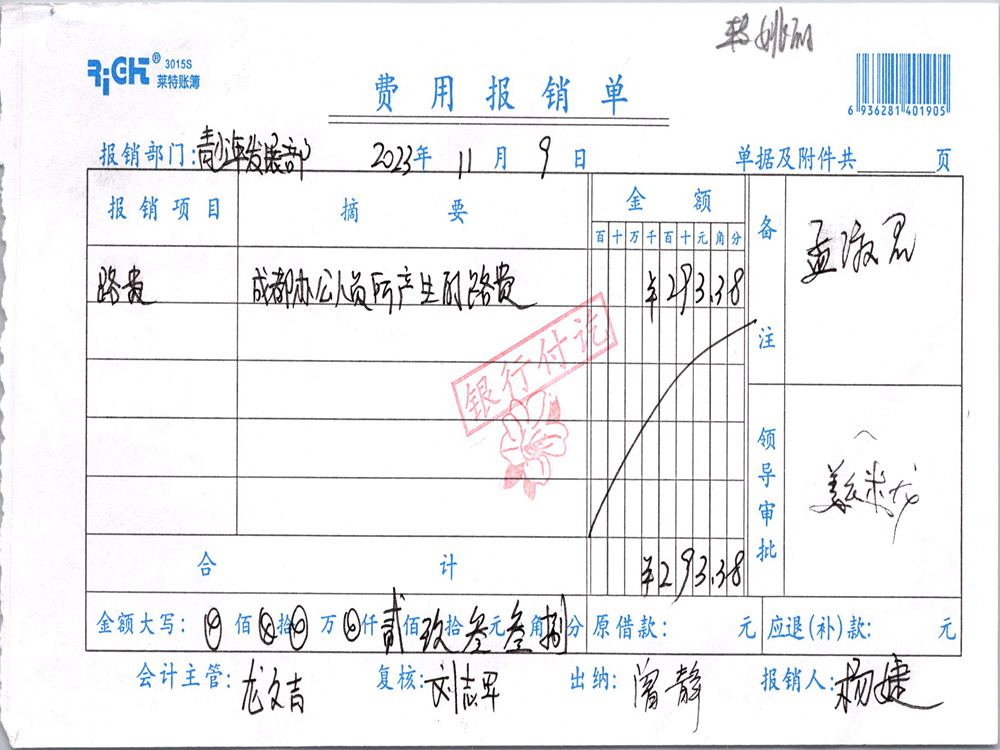 RiCH® 3015S
莱特账簿
费用报销单
6 936281 401905
报销部门: 青少年发展部 2023年 11月 9日 单据及附件共 页
报销项目 摘要 金额 备注
百 十 万 千 百 十 元 角 分
路费 成都办公人员所产生的路费 ¥293.38
银行付讫
领导审批
合计 ¥293.38
金额大写: 佰 拾 万 仟 贰佰 玖拾 叁元 叁角 捌分 原借款: 元 应退(补)款: 元
会计主管: 龙文吉 复核: 刘志军 出纳: 曾静 报销人: 杨婕